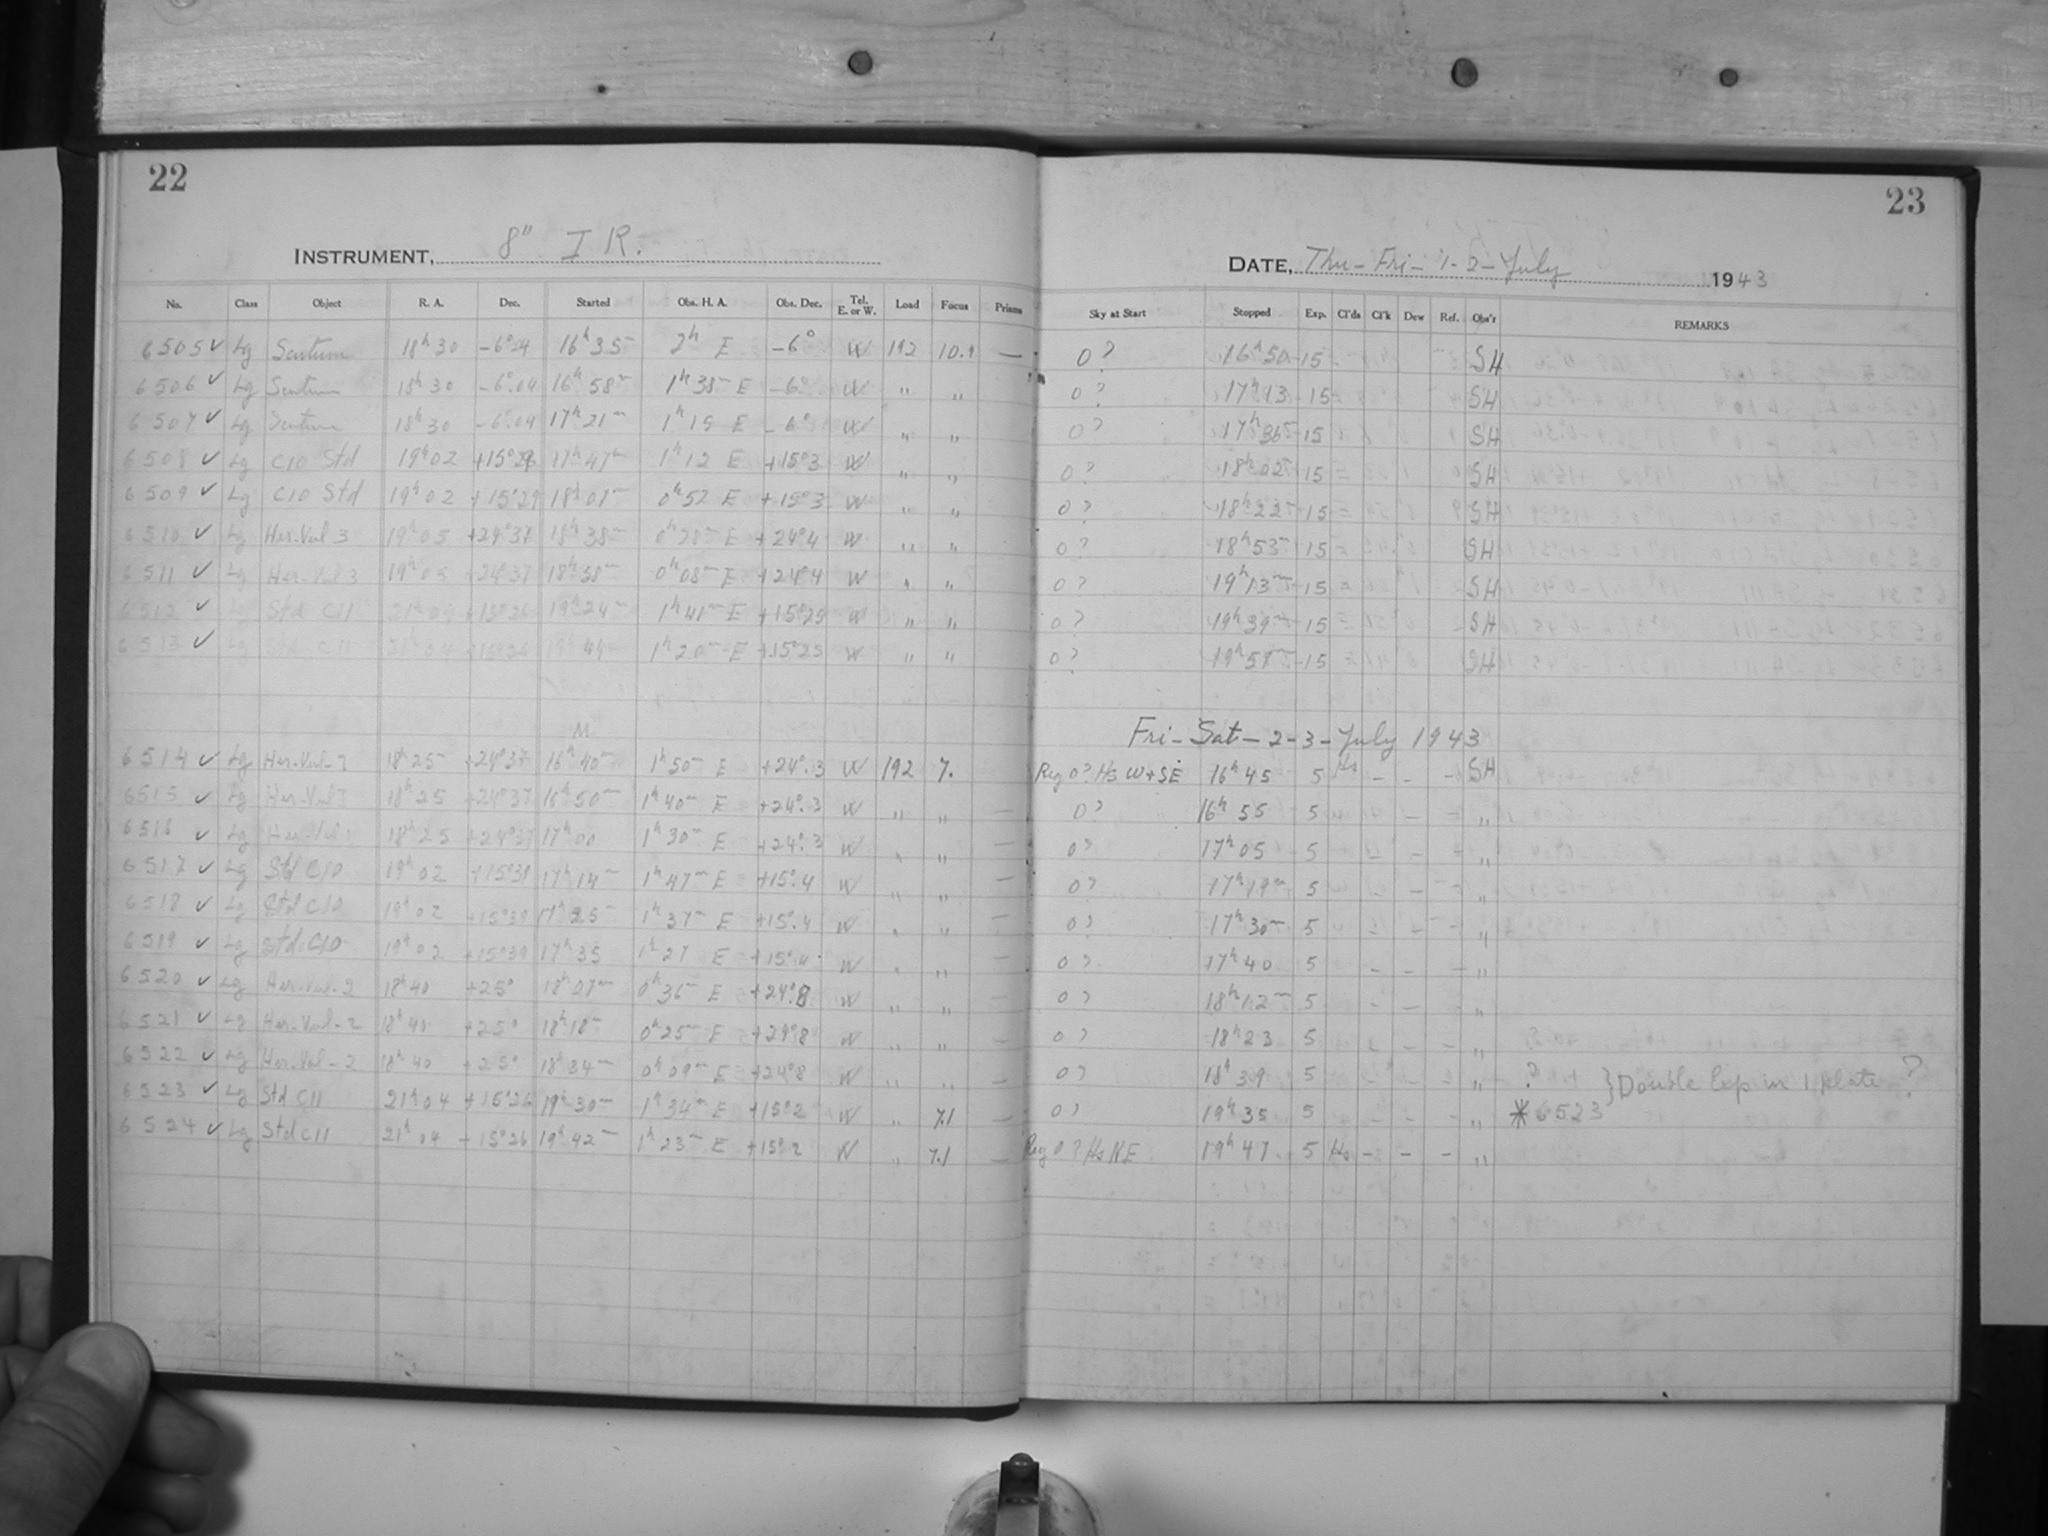 22
INSTRUMENT, 8" I R.
No. Class Object R. A. Dec. Started Obs. H. A. Obs. Dec. Tel. E. or W. Load Focus Prisms
6505 ✓ Lg Scutum 18h 30 -6°04 16h 35 2h E -6° W 192 10.1 —
6506 ✓ Lg Scutum 18h 30 -6°.04 16h 58m 1h 38m E -6° W " "
6507 ✓ Lg Scutum 18h 30 -6°.04 17h 21m 1h 15 E -6° W " "
6508 ✓ Lg C10 Std 19h 02 17h 47m 1h 12 E +15°3 W " "
6509 ✓ Lg C10 Std 19h 02 +15°29 18h 07m 0h 52 E +15°3 W " "
6510 ✓ Lg Her-Vul 3 19h 05 +24°37 18h 38m 0h 28m E +24°4 W " "
6511 ✓ Lg Her-Vul 3 19h 05 +24°37 18h 58m 0h 08m E +24°4 W " "
6512 ✓ Lg Std C11 21h 04 +15°26 19h 24m 1h 41m E +15°25 W " "
6513 ✓ Lg Std C11 21h 04 +15°26 19h 44m 1h 20m E +15°25 W " "
6514 ✓ Lg Her-Vul-1 18h 25 +24°37 16h 40m 1h 50m E +24°.3 W 192 7.
6515 ✓ Lg Her-Vul 1 18h 25 +24°37 16h 50m 1h 40m E +24°.3 W " " —
6516 ✓ Lg Her-Vul 1 18h 25 +24°37 17h 00 1h 30m E +24°.3 W " " —
6517 ✓ Lg Std C10 19h 02 +15°39 17h 14m 1h 47m E +15°.4 W " " —
6518 ✓ Lg Std C10 19h 02 +15°39 17h 25m 1h 37m E +15°.4 W " " —
6519 ✓ Lg Std C10 19h 02 +15°39 17h 35 1h 27 E +15°.4 W " " —
6520 ✓ Lg Her-Vul-2 18h 40 +25° 18h 07m 0h 36m E +24°.8 W " " —
6521 ✓ Lg Her-Vul-2 18h 40 +25° 18h 18m 0h 25m E +24°8 W " " —
6522 ✓ Lg Her-Vul-2 18h 40 +25° 18h 34m 0h 09m E +24°8 W " " —
6523 ✓ Lg Std C11 21h 04 +15°26 19h 30m 1h 34m E +15°2 W " 7.1 —
6524 ✓ Lg Std C11 21h 04 +15°26 19h 42m 1h 23m E +15°2 W " 7.1 —
23
DATE, Thu-Fri-1-2-July 1943
Sky at Start Stopped Exp. Cl'ds Cl'k Dew Ref. Obs'r REMARKS
0? 16h 50 15 SH
0? 17h 13 15 SH
0? 17h 36 15 SH
0? 18h 02 15 SH
0? 18h 22 15 SH
0? 18h 53m 15 SH
0? 19h 13m 15 SH
0? 19h 39m 15 SH
0? 19h 59m 15 SH
Fri-Sat-2-3-July 1943
Reg 0? Hs W+SE 16h 45 5 Hs — — — SH
0? 16h 55 5 — — "
0? 17h 05 5 — — "
0? 17h 19m 5 — — "
0? 17h 30m 5 — — — "
0? 17h 40 5 — — — "
0? 18h 12m 5 — — — "
0? 18h 23 5 — — — "
0? 18h 39 5 — — — " ? } Double Exp in 1 plate ?
0? 19h 35 5 — — — " * 6523
Reg 0? Hs NE 19h 47 5 Hs — — — "